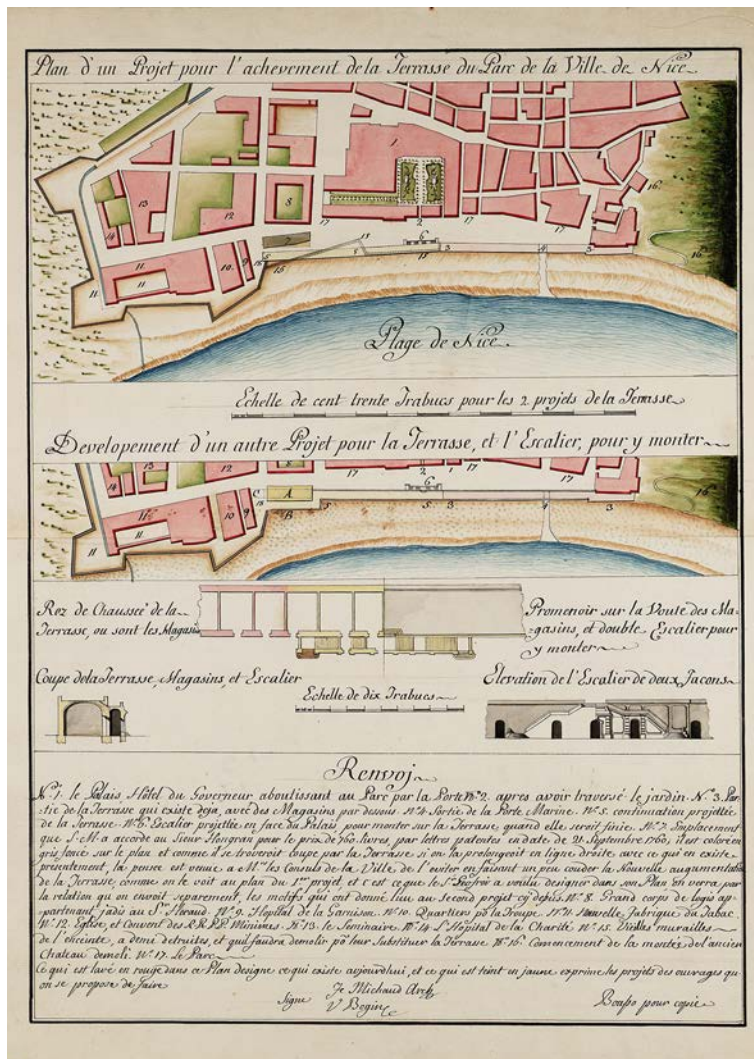 Plan d'un Projet pour l'achevement de la Terrasse du Parc de la Ville de Nice
Plage de Nice
Echelle de cent trente Trabucs pour les 2 projets de la Terrasse
Developement d'un autre Projet pour la Terrasse, et l'Escalier, pour y monter
Rez de Chaussée de la
Terrasse, ou sont les Magasins
Promenoir sur la Voute des Ma-
gasins, et double Escalier pour
y monter
Coupe de la Terrasse, Magasins, et Escalier
Echelle de dix Trabucs
Elevation de l'Escalier de deux Facons
Renvoj
N.º 1. le Palais Hôtel du Governeur aboutissant au Parc par la Porte Nº 2. apres avoir traversé le jardin. N.º 3. Par-
tie de la Terrasse qui existe deja, avec des Magasins par dessus. Nº 4. Sortie de la Porte Marine. Nº 5. continuation projettée
de la Terrasse. Nº 6. Escalier projettée en face du Palais, pour monter sur la Terrasse, quand elle seroit finie. Nº 7. Emplacement
que S. M. a accordé au Sieur Hongran pour le prix de 760. livres, par lettres patentes en date de 21. Septembre 1760, il est coloré en
gris foncé sur le plan et comme il se troveroit coupé par la Terrasse si on la prolongeoit en ligne droite avec ce qui en existe
présentement, la pensée est venue a M.rs les Consuls de la Ville de l'eviter en faisant un peu couder la Nouvelle augmentation
de la Terrasse comme on le voit au plan du 1.er projet, et c'est ce que le S.r Geofroir a voulu designer dans son Plan on verra par
la relation qu'on envoit separement, les motifs qui ont donné lieu au second projet cy depuis. Nº 8. Grand corps de logis ap-
partenant jadis au S.r Moraud. Nº 9. Hopital de la Garnison. Nº 10. Quartiers po la Troupe. Nº 11. Nouvelle Fabrique du Tabac.
Nº 12. Eglise, et Convent des R.R.P.P. Minimes. Nº 13. le Seminaire. Nº 14. L'Hôpital de la Charité. Nº 15. Vieilles murailles
de l'enceinte, a demi detruites, et qu'il faudra demolir po leur substituer la Terrasse. Nº 16. Comencement de la montée de l'ancien
Chateau demoli. Nº 17. Le Parc
Ce qui est lavé en rouge dans ce Plan designe ce qui existe aujourdhui, et ce qui est teint en jaune exprime les projets des ouvrages qu'
on se propose de faire
Signé Je Michaud Arch.
V Begin
pour copie